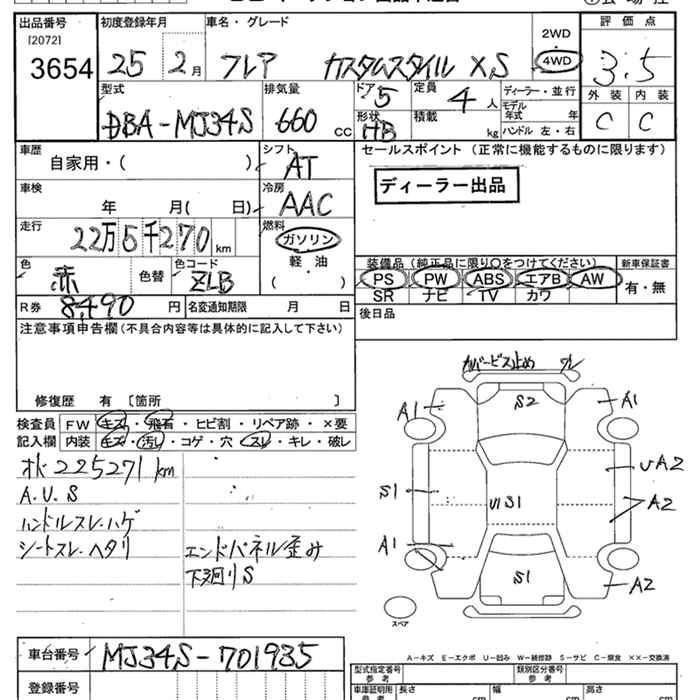 出品番号
[2072]
3654
初度登録年月
25 2月
車名・グレード
フレア カスタムスタイル XS
2WD
4WD
評価点
3.5
外装 内装
C C
型式
DBA-MJ34S
排気量
660 cc
ドア
5
形状
HB
定員
4 人
積載
kg
ディーラー・並行
モデル年式 年
ハンドル 左・右
車歴
自家用・( )
シフト
AT
セールスポイント (正常に機能するものに限ります)
ディーラー出品
車検
年 月( 日)
冷房
AAC
走行
22万5千270 km
燃料
ガソリン
軽・油
( )
色
赤 色替
色コード
ZLB
装備品(純正品に限り○をつけてください)
PS PW ABS エアB AW
SR ナビ TV カワ
新車保証書
有・無
R券 8,490 円
名変通知期限 月 日
後日品
注意事項申告欄(不具合内容等は具体的に記入して下さい)
修復歴 有 〔箇所 〕
検査員
記入欄
FW キズ・飛石・ヒビ割・リペア跡・×要
内装 キズ・汚レ・コゲ・穴・スレ・キレ・破レ
オド225271km
A.U.S
ハンドルスレ.ハゲ
シートスレ.ヘタリ
エンドパネル歪み
下廻りS
カバービス止め ワレ
A1 S2 A1
UA2
S1 U1S1 A2
A1
S1 A2
スペア
A-キズ E-エクボ U-凹み W-補修跡 S-サビ C-腐食 ××-交換済
車台番号
MJ34S-701935
登録番号
型式指定番号
参考
類別区分番号
参考
車庫証明用
参考
長さ cm
幅 cm
高さ cm